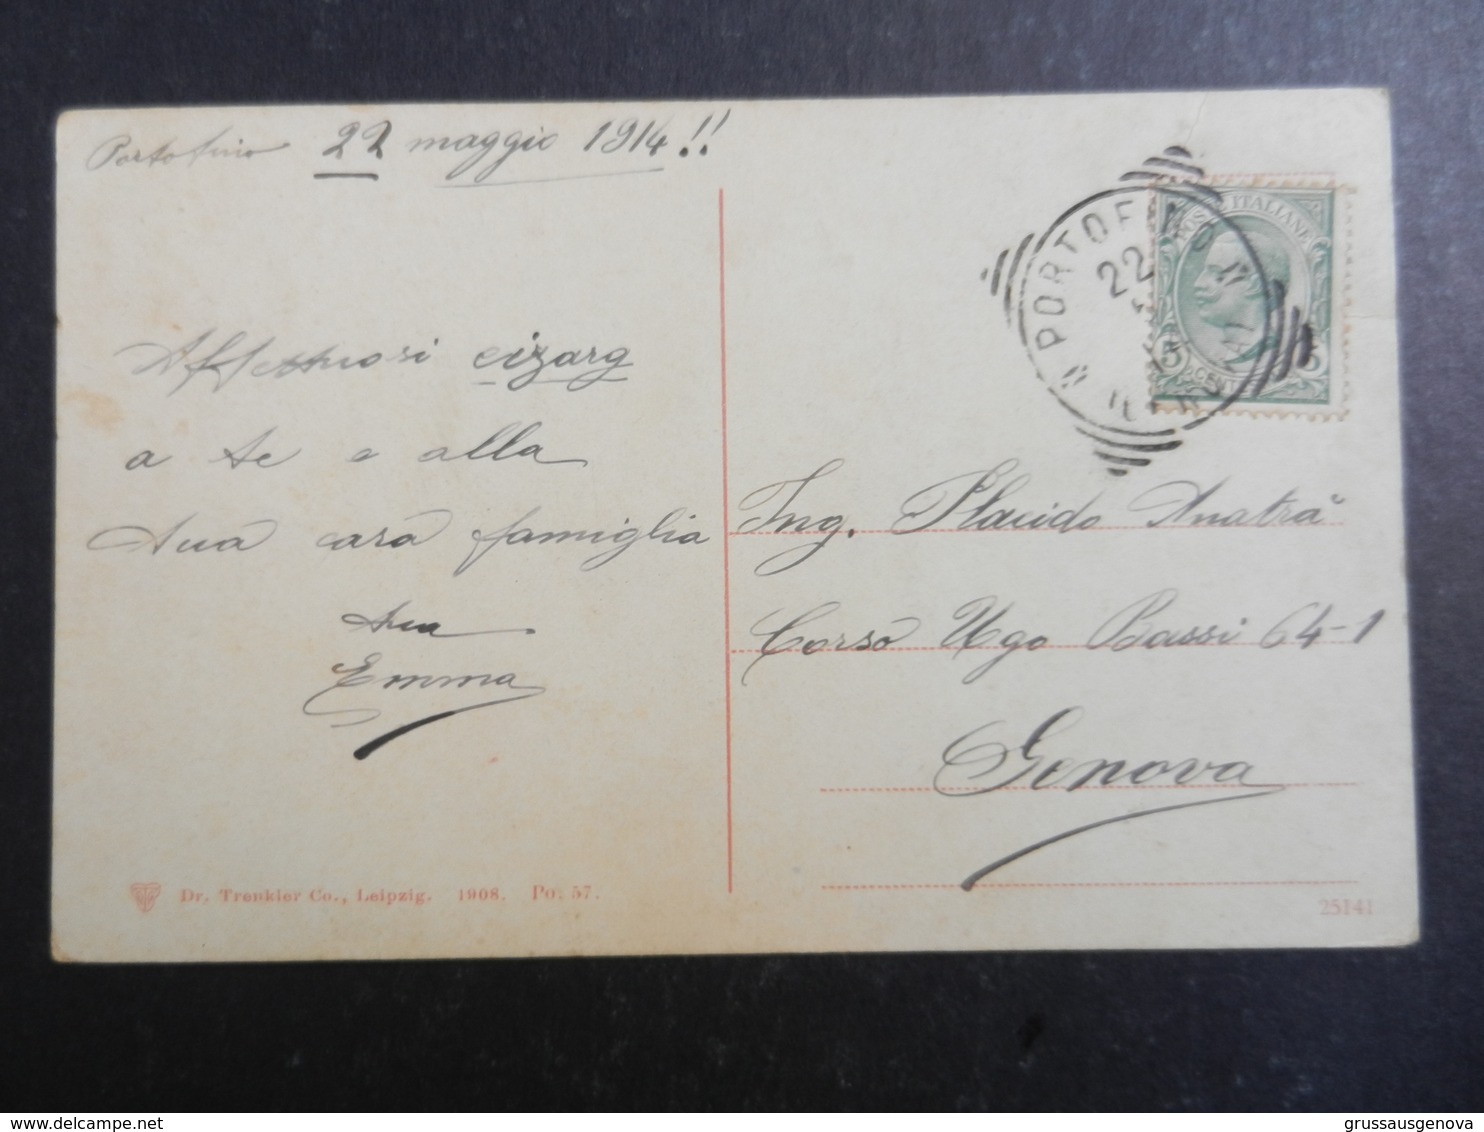 Portofino 22 maggio 1914!!
Affettuosi eizarg
a te e alla
tua cara famiglia
tua
Emma
Dr. Trenkler Co., Leipzig. 1908. Po. 57.
PORTOFINO
22
POSTE ITALIANE
5 CENT 5
Ing. Placido Anatrà
Corso Ugo Bassi 64-1
Genova
25141
delcampe.net
grussausgenova